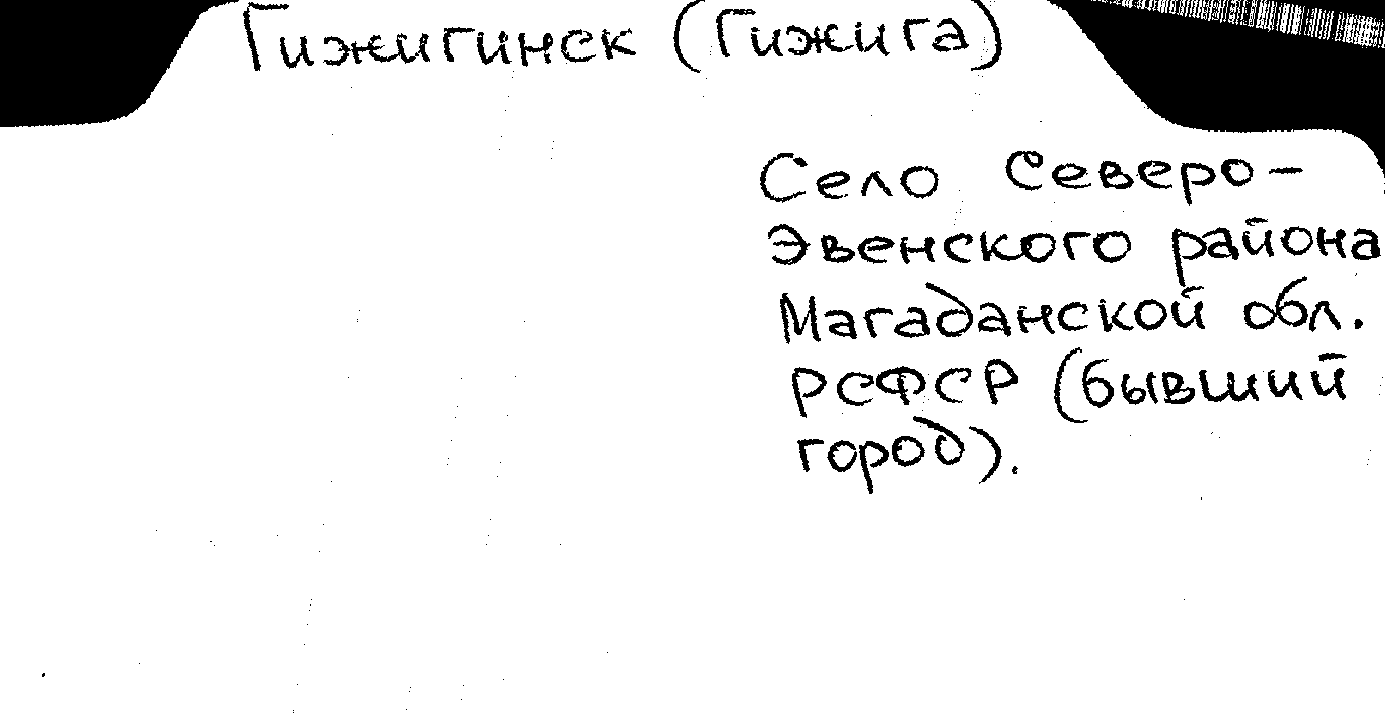 Гижигинск (Гижига)
Село Северо-
Эвенского района
Магаданской обл.
РСФСР (бывший
город).